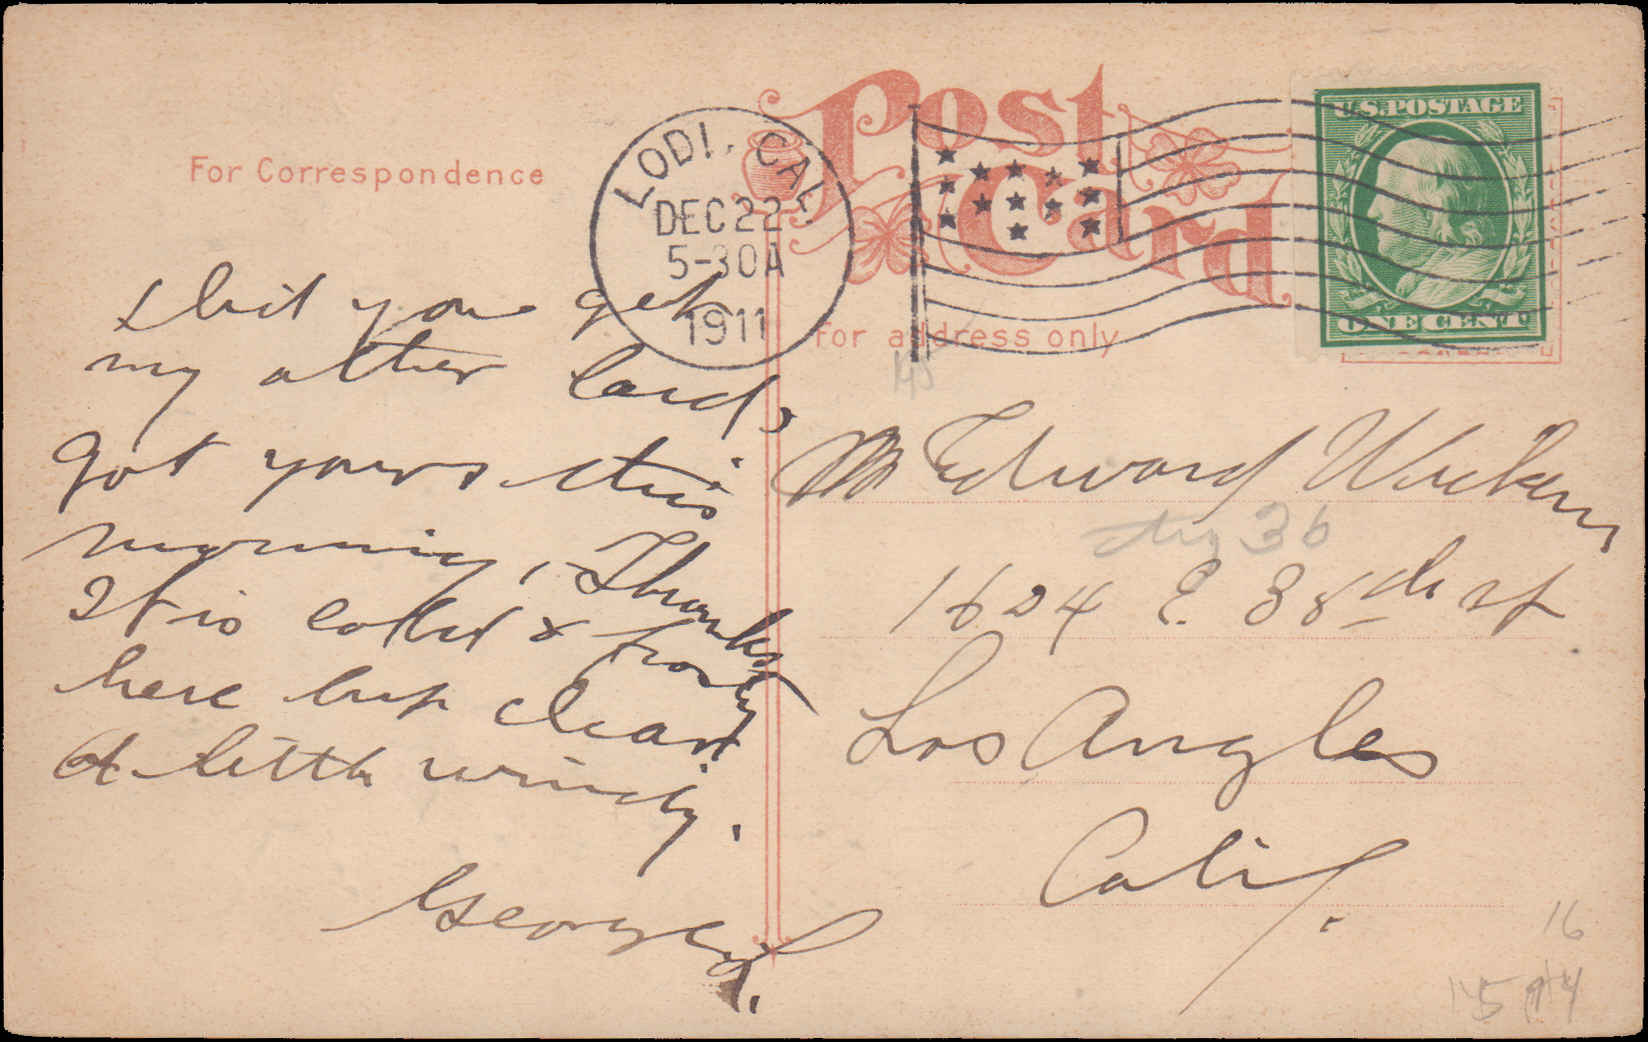 Post
Card
For Correspondence
LODI, CAL.
DEC 22
5-30A
1911
U.S. POSTAGE
ONE CENT
For address only
did you get
my other card,
got yours this
morning, Thanks
It is cold & frosty
here but clear
A little windy.
George
Mr Edward
1624 E. 38th st
Los Angles
Calif.
36
16